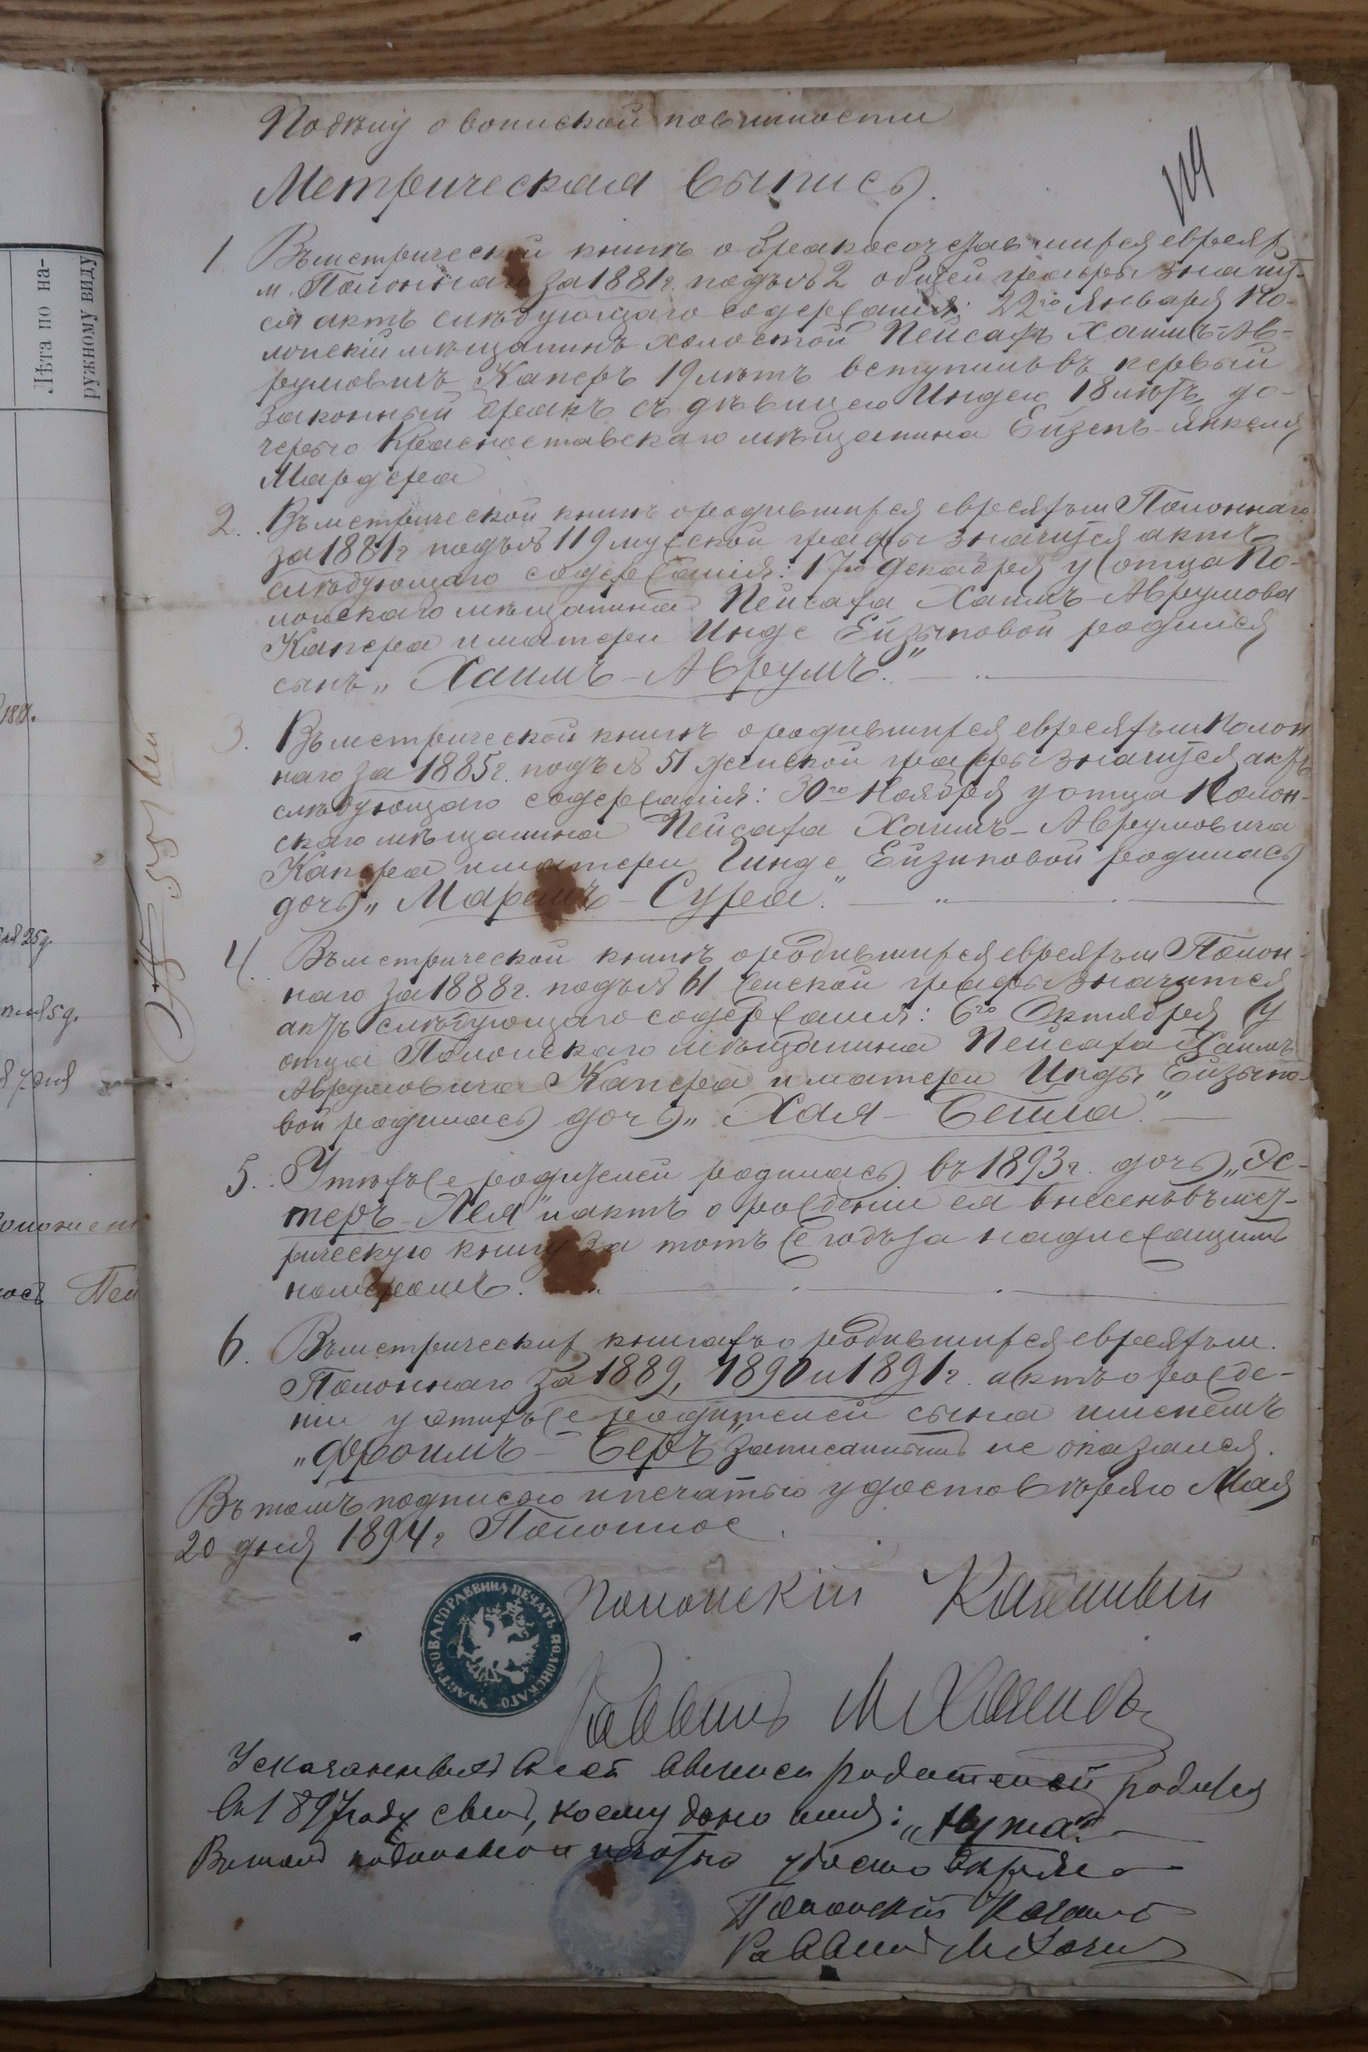 Лѣта по на-
ружному виду
По дѣлу о воинской повинности
Метрическая выпись.
1 Въ метрической книгѣ о бракосочетавшихся евреяхъ
м. Полоннаго за 1881 г. подъ № 2 общей графы значит-
ся актъ слѣдующаго содержанія: 22го Января По-
лонскій мѣщанинъ холостой Пейсахъ Хаимъ-Ав-
румовичъ Каперъ 19 лѣтъ вступилъ въ первый
законный бракъ съ дѣвицею Индею 18 лѣтъ до-
черью Красноставскаго мѣщанина Ейзепъ-Янкеля
Мардера
2. Въ метрической книгѣ о родившихся евреяхъ м Полоннаго
за 1881 г подъ № 119 мужской графы значится актъ
слѣдующаго содержанія: 17го Декабря у отца По-
лонскаго мѣщанина Пейсаха Хаимъ-Аврумова
Капера и матери Инде Ейзыковой родился
сынъ „Хаимъ-Аврумъ."
3. Въ метрической книгѣ о родившихся евреяхъ м Полон
наго за 1885 г. подъ № 51 женской графы значится актъ
слѣдующаго содержанія: 30го Ноября у отца Полон-
скаго мѣщанина Пейсаха Хаимъ-Аврумовича
Капера и матери Гинде Ейзиковой родилась
дочь „Маремъ-Сура."
4 Въ метрической книгѣ о родившихся евреяхъ м Полон-
наго за 1888 г. подъ № 61 женской графы значится
актъ слѣдующаго содержанія: 6го Октября у
отца Полонскаго мѣщанина Пейсаха Хаимъ
Аврумовича Капера и матери Инды Ейзыко-
вой родилась дочь „Хая-Бейла"
5. У тѣхъ же родителей родилась въ 1893 г. дочь „Эс-
теръ-Лея" и актъ о рожденіи ея внесенъ въ мет-
рическую книгу за тотъ же годъ за надлежащимъ
номеромъ.
6. Въ метрическихъ книгахъ о родившихся евреяхъ м.
Полоннаго за 1889, 1890 и 1891 г. актъ о рожде-
ніи у этихъ же родителей сына именемъ
„Фроимъ-Беръ" записаннымъ не оказался.
Въ томъ подписью и печатью удостовѣряю Мая
20 дня 1894 г Полонное.
Полонскій Казенный
Раввинъ М Хазинъ
ПЕЧАТЬ ПОЛОНСКАГО УЧАСТКОВАГО РАВВИНА
У сказанныхъ въ сей выписи родителей родился
въ 1897 году сынъ, коему дано имя: „Нута"
Въ томъ подписью и печатью удостовѣряю
Полонскій Казенн
Раввинъ М Хазинъ